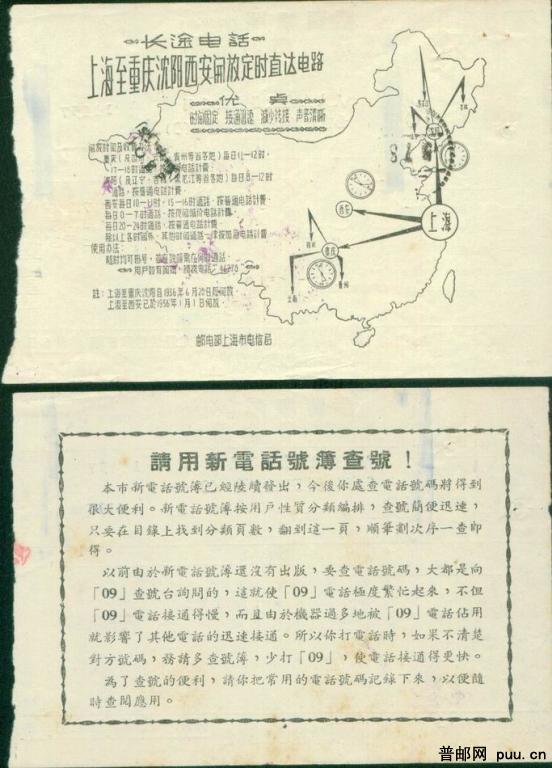 长途电話
上海至重庆沈阳西安開放定时直达电路
优点
时间固定 接通迅速 减少銭接 声音清晰
17—18时通話，按普通电話計費
通話，按普通电話計費
西安每日10—11时，15—16时通話，按普通电話計費
每日0—7时通話，按夜間減价电話計費
每日20—24时通話，按普通电話計費
使用办法：
註：上海至重庆沈陽自1956年6月20日起開放
上海至西安已於1956年1月1日開放
邮电部上海市电信局
西安
重庆
成都
貴州
上海
請用新電話號簿查號！
本市新電話號簿已經陸續發出，今後你處查電話號碼將得到
很大便利。新電話號簿按用戶性質分類編排，查號簡便迅速，
只要在目錄上找到分類頁數，翻到這一頁，順筆劃次序一查即
得。
以前由於新電話號簿還沒有出版，要查電話號碼，大都是向
「09」查號台詢問的，這就使「09」電話極度繁忙起來，不但
「09」電話接通得慢，而且由於機器過多地被「09」電話佔用
就影響了其他電話的迅速接通。所以你打電話時，如果不清楚
對方號碼，務請多查號簿，少打「09」，使電話接通得更快。
為了查號的便利，請你把常用的電話號碼記錄下來，以便隨
時查閱應用。
普邮网 puu.cn